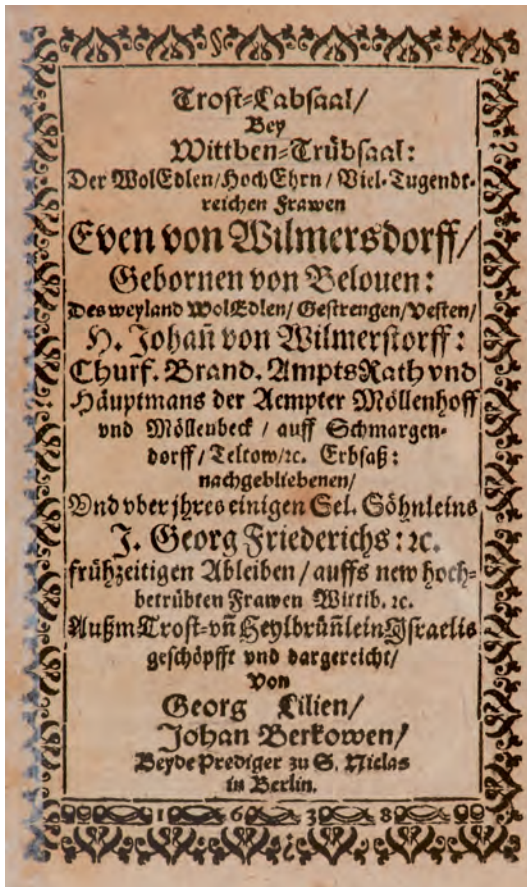 Trost-Labsaal/
Bey
Wittben-Trübsaal:
Der WolEdlen/HochEhrn/Viel-Tugendt-
reichen Frawen
Even von Wilmersdorff/
Gebornen von Belouen:
Des weyland WolEdlen/Gestrengen/Vesten/
H. Johañ von Wilmerstorff:
Churf. Brand. AmptsRath vnd
Häuptmans der Aempter Möllenhoff
vnd Möllenbeck / auff Schmargen-
dorff/Teltow/ꝛc. Erbsaß:
nachgebliebenen/
Vnd vber jhres einigen Sel. Söhnleins
J. Georg Friederichs: ꝛc.
frühzeitigen Ableiben/auffs new hoch-
betrübten Frawen Wittib. ꝛc.
Außm Trost-vñ Heylbrüñlein Jsraelis
geschöpfft vnd dargereicht/
Von
Georg Lilien/
Johan Berkowen/
Beyde Prediger zu S. Niclas
in Berlin.
1 6 3 8